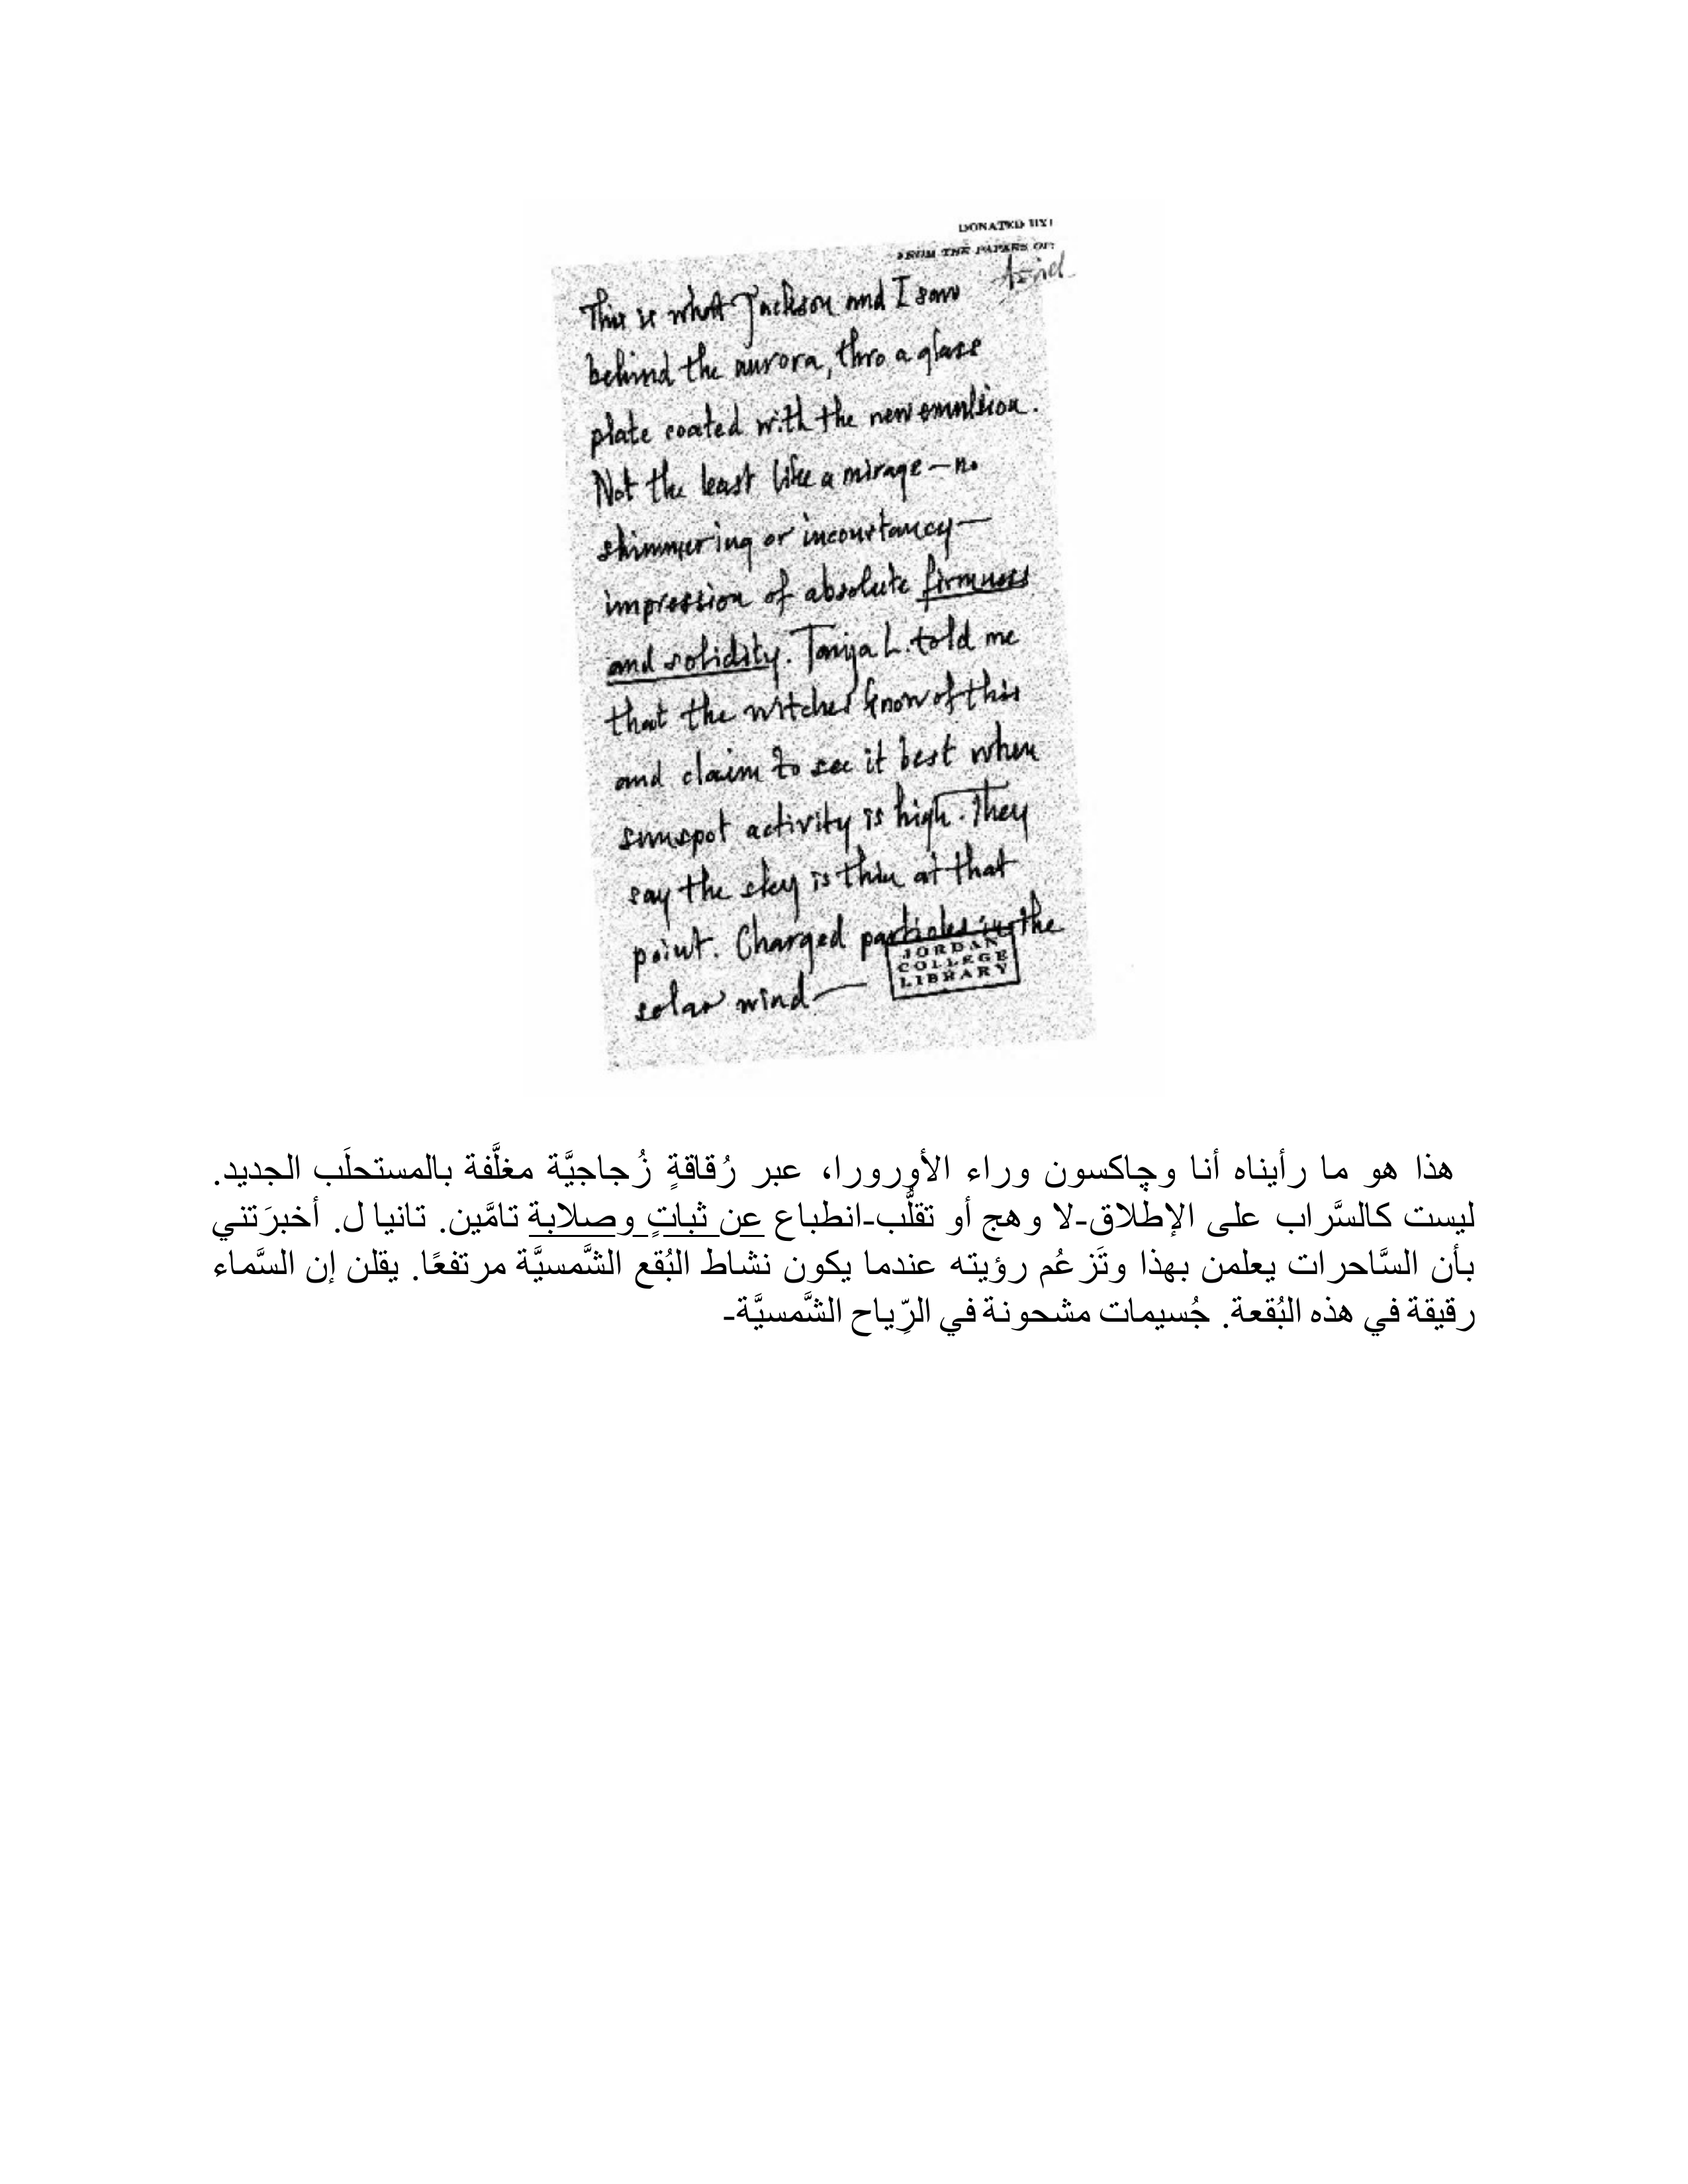 DONATED BY:
FROM THE PAPERS OF:
Asriel
This is what Jackson and I saw
behind the aurora, thro a glass
plate coated with the new emulsion.
Not the least like a mirage — no
shimmering or inconstancy —
impression of absolute firmness
and solidity. Tanja L. told me
that the witches know of this
and claim to see it best when
sunspot activity is high. They
say the sky is thin at that
point. Charged particles in the
solar wind —
JORDAN
COLLEGE
LIBRARY
هذا هو ما رأيناه أنا وچاكسون وراء الأورورا، عبر رُقاقةٍ زُجاجيَّة مغلَّفة بالمستحلَب الجديد.
ليست كالسَّراب على الإطلاق-لا وهج أو تقلُّب-انطباع عن ثباتٍ وصلابة تامَّين. تانيا ل. أخبرَتني
بأن السَّاحرات يعلمن بهذا وتَزعُم رؤيته عندما يكون نشاط البُقع الشَّمسيَّة مرتفعًا. يقلن إن السَّماء
رقيقة في هذه البُقعة. جُسيمات مشحونة في الرِّياح الشَّمسيَّة-